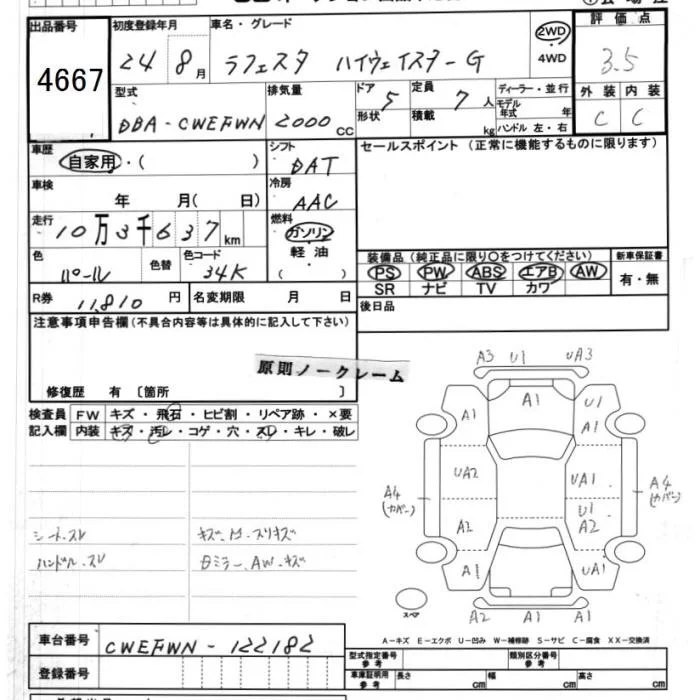 出品番号 初度登録年月 車名・グレード 評価点
4667 24 8月 ラフェスタ ハイウェイスターG 2WD 4WD 3.5
型式 排気量 ドア 定員 ディーラー・並行 外装 内装
DBA-CWEFWN 2000CC 5 7人 モデル年式 年 C C
形状 積載 kg ハンドル 左・右
車歴 シフト セールスポイント(正常に機能するものに限ります)
自家用・( ) DAT
車検 冷房
年 月( 日) AAC
走行 燃料
10万3千637km ガソリン
色 色替 色コード 軽油 装備品(純正品に限り○をつけてください) 新車保証書
パール 34K ( ) PS PW ABS エアB AW 有・無
SR ナビ TV カワ
R券 11,810円 名変期限 月 日 後日品
注意事項申告欄(不具合内容等は具体的に記入して下さい)
原則ノークレーム
修復歴 有 [箇所 ]
検査員 FW キズ・飛石・ヒビ割・リペア跡・×要
記入欄 内装 キズ・汚レ・コゲ・穴・スレ・キレ・破レ
シートスレ キズ、凹、スリキズ
ハンドル.スレ Bミラー、AW.キズ
A3 U1 UA3
A1 A1 U1
A1
UA2 UA1
A4 (カバー) U1 A4 (カバー)
A2 A2
A1 UA1
スペア A2 A1 A1
A-キズ E-エクボ U-凹み W-補修跡 S-サビ C-腐食 XX-交換済
車台番号 CWEFWN-122182
型式指定番号 参考 類別区分番号 参考
登録番号 車庫証明用 参考 長さ cm 幅 cm 高さ cm